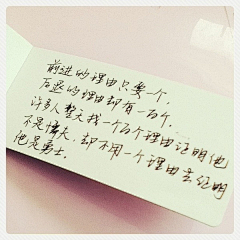 前进的理由只要一个,
后退的理由却有一百个.
许多人整天找一百个理由证明他
不是懦夫,却不用一个理由去证明
他是勇士.